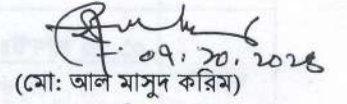 ০৭.১০.২০২৪
(মো: আল মাসুদ করিম)